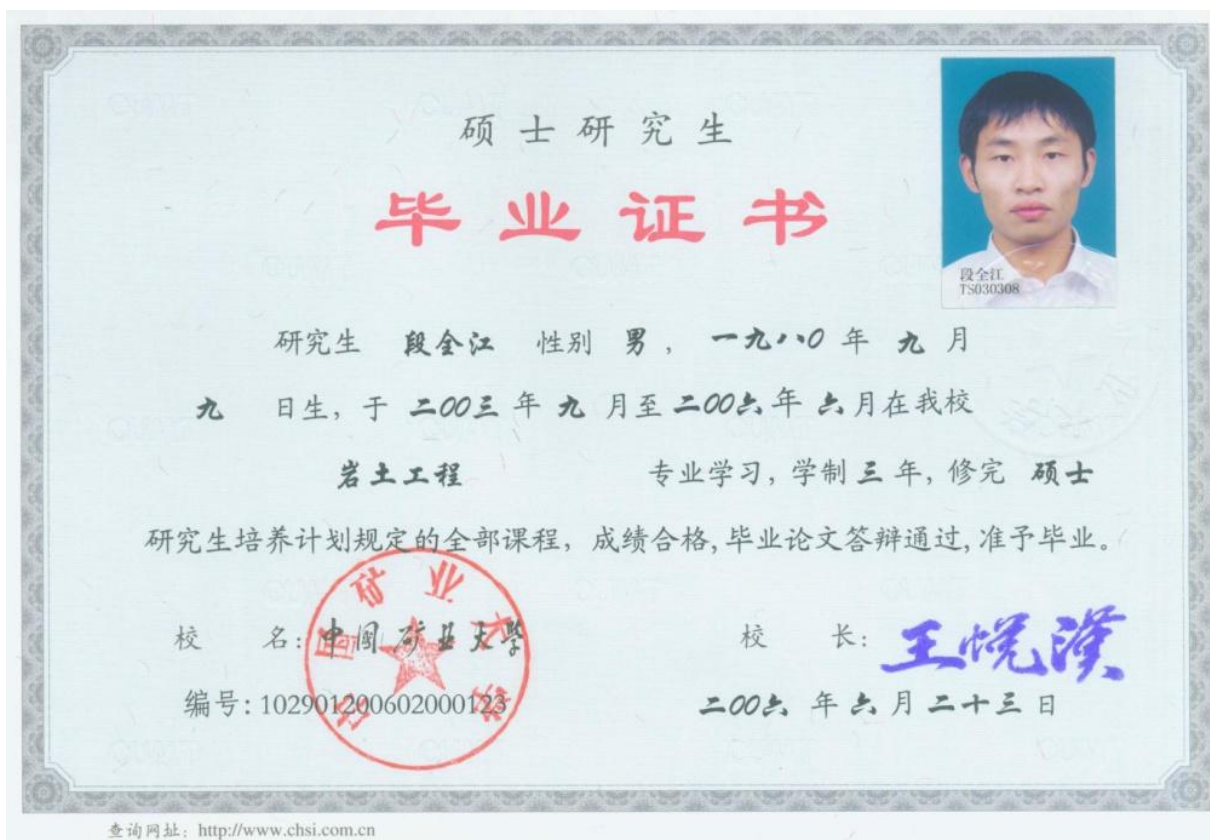 硕士研究生
毕业证书
段全江
TS030308
研究生 段全江 性别 男， 一九八〇 年 九 月
九 日生，于 二〇〇三 年 九 月至 二〇〇六 年 六 月在我校
岩土工程 专业学习，学制 三 年，修完 硕士
研究生培养计划规定的全部课程，成绩合格，毕业论文答辩通过，准予毕业。
校 名：中国矿业大学
校 长：王悦汉
中国矿业大学
编号：102901200602000123
二〇〇六 年 六 月 二十三 日
查询网址：http://www.chsi.com.cn